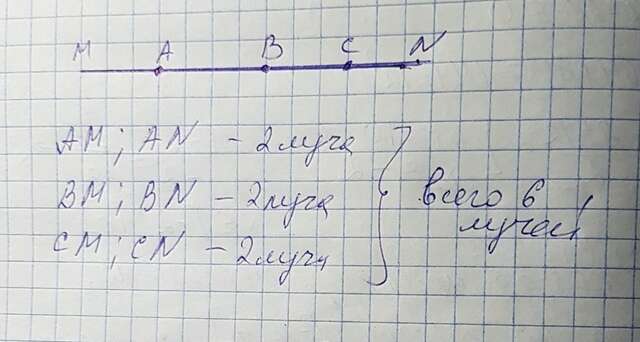 М А В С N
АМ; AN - 2 луча
ВМ; BN - 2 луча
СМ; CN - 2 луча
всего 6
лучей